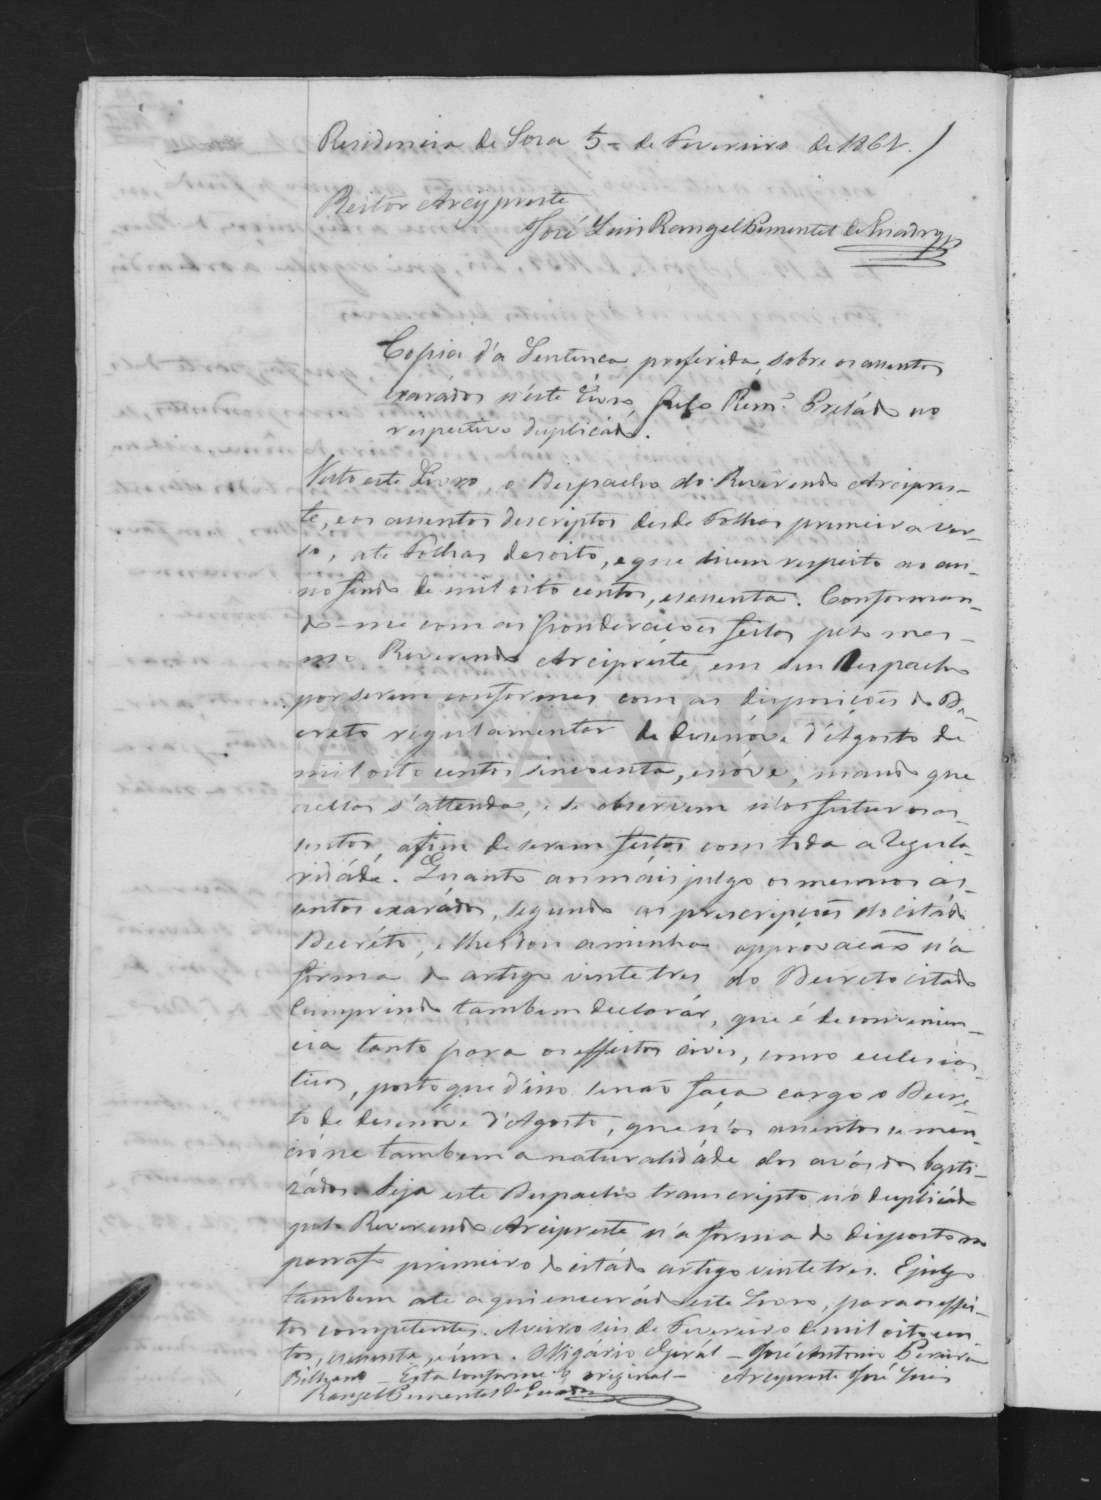 Residencia de Sosa 5 = de Fevereiro de 1861. /
Reitor Arcypreste
José Luis Rangel Pimentel de Quadros
Copia d'a Sentença proferida, sobre os assentos
exarádos n'éste Livro, pelo Rem.º Preládo no
respectivo duplicádo.
Visto este Livro, o Despacho do Reverendo Arcipres-
te, e os assentos descriptos desde folhas primeira ver-
so, até folhas desoito, e que disem respeito ao an-
no findo de mil oito centos, e sessenta. Conforman-
do-me com as ponderações feitas pelo mes-
mo Reverendo Arcipreste em seu Despacho
por serem conformes com as disposições do De-
creto regulamentar de desenóve d'Agosto de
mil oito centos sincoenta, e nóve, mando que
a ellas s'attenda, e se observem n'os futuros as-
sentos, afim de serem feitos com toda a regula-
ridáde. Quanto ao mais julgo os mesmos as-
sentos exarádos, segundo as prescripções do citádo
Decréto, e lhes dou a minha approvacão n'a
forma do artigo vinte tres do Decreto citado
Cumprindo tambem declarár, que é de convenien-
cia tanto para os effeitos civis, como eclesias-
ticos, posto que d'isso se não faça cargo o Decre-
to de desenóve d'Agosto, que n'os assentos se men-
cióne tambem a naturalidáde dos avós dos bapti-
zádos. Seja este Despacho transcripto n'o duplicádo
pelo Reverendo Arcipreste n'a forma do disposto no
parrafo primeiro do citádo artigo vinte tres. E julgo
tambem até aqui encerrádo este Livro, para os effei-
tos competentes. Aveiro seis de Fevereiro de mil oito cen-
tos, sessenta, e úm. O Vigário Gerál - José Antonio Pereira
Bilhano - Está conforme o original - Arcipreste José Luis
Rangel Pimentel de Quadros
ADAVR